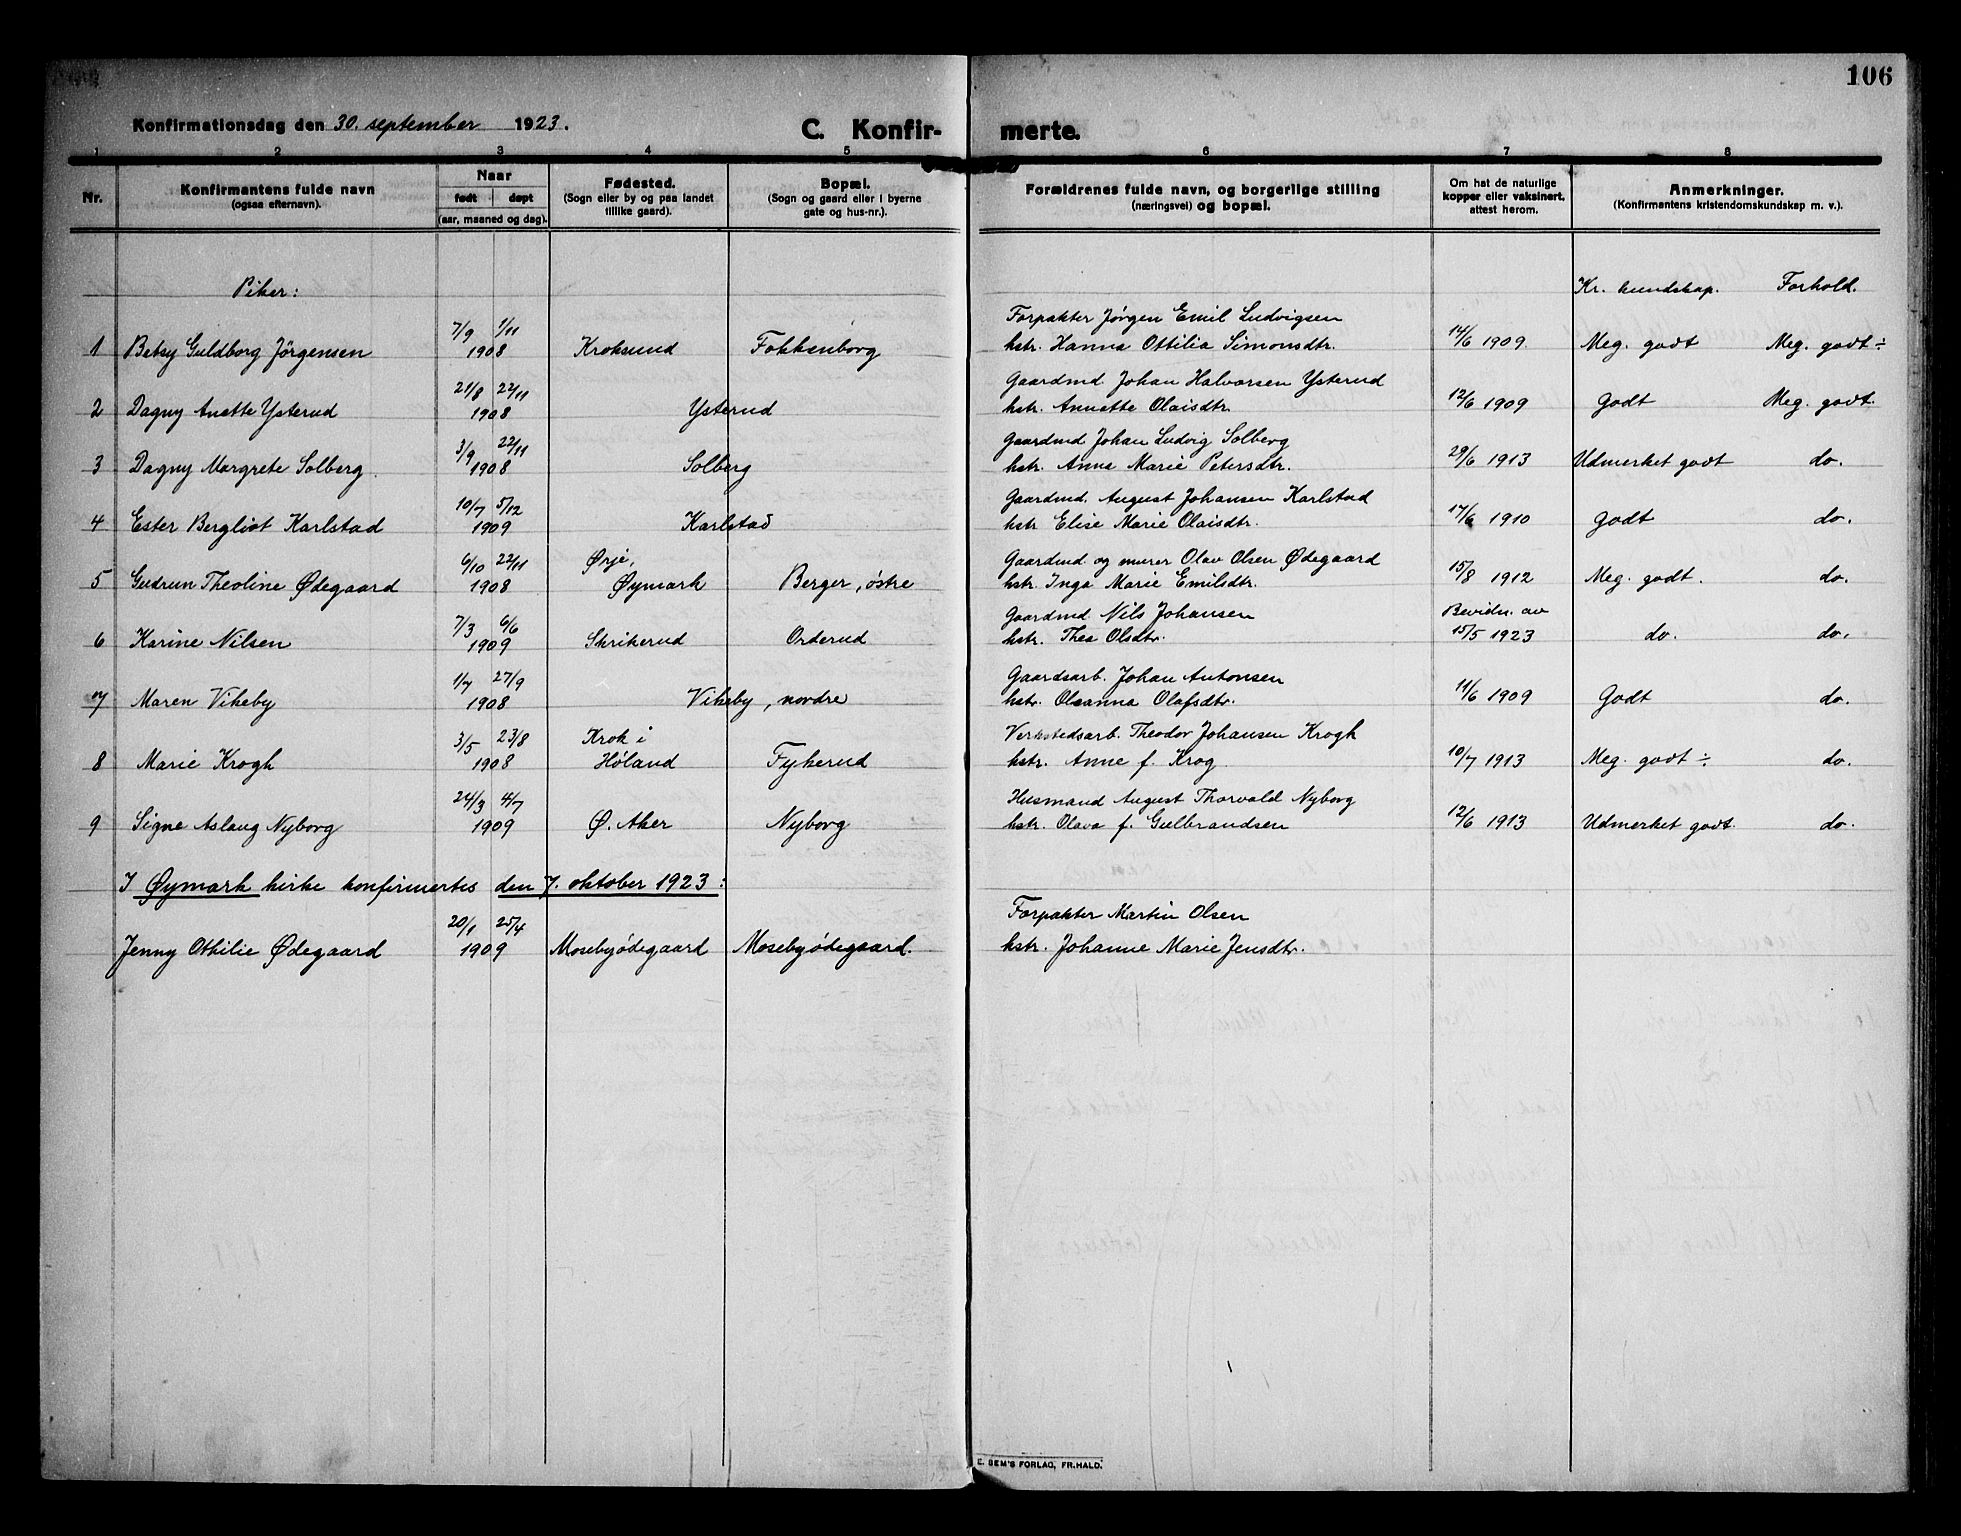 106
Konfirmationsdag den 30. september 1923.
C. Konfir-
merte.
1 2 3 4 5 6 7 8
Nr.
Konfirmantens fulde navn
(ogsaa efternavn).
Naar
født døpt
(aar, maaned og dag).
Fødested.
(Sogn eller by og paa landet
tillike gaard).
Bopæl.
(Sogn og gaard eller i byerne
gate og hus-nr.).
Forældrenes fulde navn, og borgerlige stilling
(næringsvei) og bopæl.
Om hat de naturlige
kopper eller vaksinert,
attest herom.
Anmerkninger.
(Konfirmantens kristendomskundskap m. v.).
Piker:
Kr. kundskap. Forhold.
7/9 1/11 Forpakter Jørgen Emil Ludvigsen
1 Betsy Guldborg Jörgensen 1908 Kroksund Fokkenborg hstr. Hanna Ottilia Simonsdtr. 14/6 1909. Meg. godt Meg. godt ÷
21/8 22/11 Gaardmd. Johan Halvorsen Ysterud
2 Dagny Anette Ysterud 1908 Ysterud hstr. Annette Olaisdtr. 12/6 1909 Godt Meg. godt.
3/9 22/11 Gaardmd Johan Ludvig Solberg
3 Dagny Margrete Solberg. 1908 Solberg hstr. Anna Marie Petersdtr. 29/6 1913 Udmerket godt do.
10/7 5/12 Gaardmd. August Johansen Karlstad
4 Ester Bergliot Karlstad 1909 Karlstad hstr Elise Marie Olaisdtr. 17/6 1910 Godt do.
6/10 22/11 Ørje, Gaardmd og murer Olav Olsen Ødegaard
5 Gudrun Theoline Ødegaard 1908 Øymark Berger, östre hstr. Inga Marie Emilsdtr. 15/8 1912 Meg. godt. do.
7/3 6/6 Gaardmd. Nils Johansen Bevidn. av
6 Karine Nilsen 1909 Skrikerud Orderud hstr. Thea Olsdtr. 15/5 1923 do. do.
1/7 27/9 Gaardsarb. Johan Antonsen
7 Maren Vikeby 1908 Vikeby, nordre hstr. Oleanna Olafsdtr. 11/6 1909 Godt do.
3/5 23/8 Krok i Verkstedsarb. Theodor Johansen Krogh
8 Marie Krogh 1908 Høland Fykerud hstr. Anne f. Krog 10/7 1913 Meg. godt ÷ do.
24/3 4/7 Husmand August Thorvald Nyborg
9 Signe Aslaug Nyborg 1909 Ø. Aker Nyborg hstr. Olava f. Gulbrandsen 12/6 1913 Udmerket godt. do.
I Øymark kirke konfirmertes den 7. oktober 1923:
20/1 25/4 Forpakter Martin Olsen
Jenny Othilie Ødegaard 1909 Mosebyödegaard Mosebyödegaard. hstr. Johanne Marie Jensdtr.
E. SEM'S FORLAG, FR.HALD.